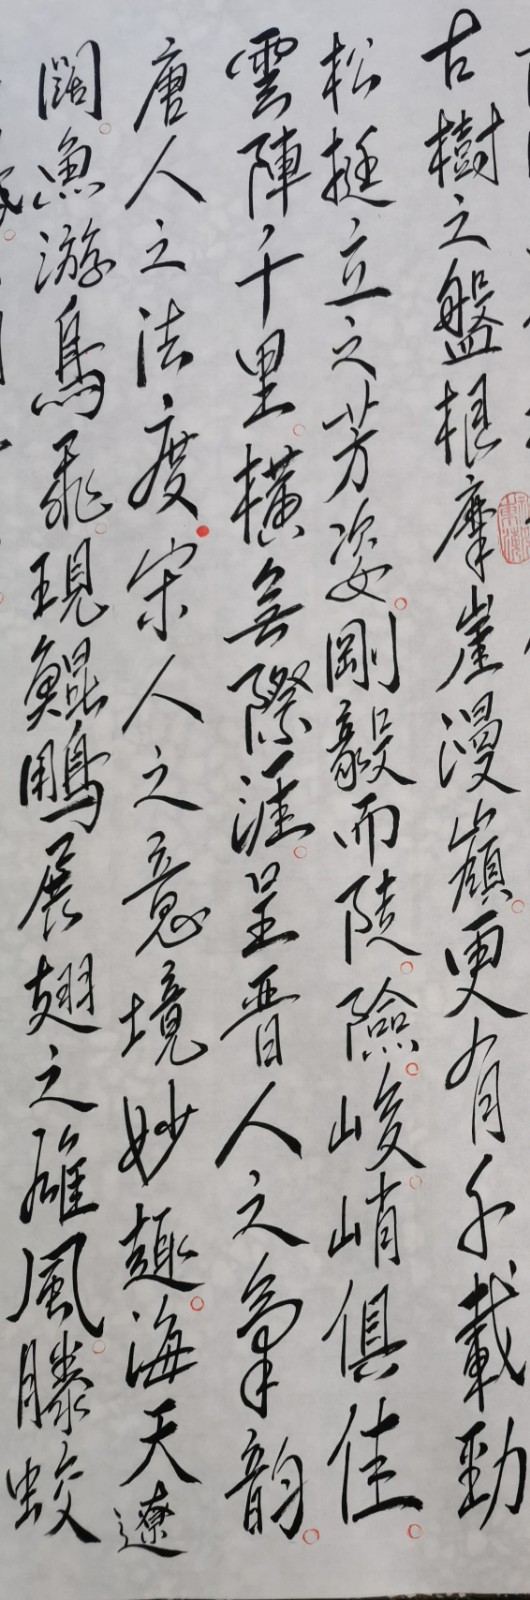 古樹之盤根摩崖漫嶺更有千載勁
松挺立之芳姿剛毅而陡險峻峭俱佳
雲陣千里橫無際涯呈晉人之氣韵
唐人之法度宋人之意境妙趣海天遼
闊魚游鳥飛現鯤鵬展翅之雄風騰蛟